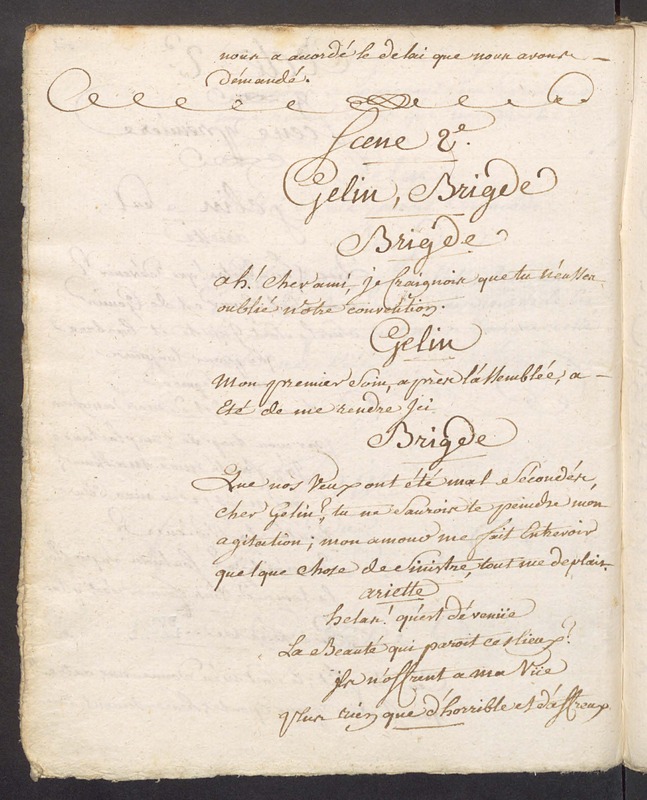 nous a accordé le delai que nous avons
démandé.
Scene 2.e
Gelin, Brigde
Brigde
ah! cher ami je craignois que tu n'eusses
oublié nôtre convention.
Gelin
Mon premier Soin, après l'assemblée, a
Eté de me rendre Jci
Brigde
Que nos Veux ont été mal Sécondés,
cher Gelin! tu ne Saurois te peindre mon
agitation; mon amour me fait Entrevoir
quelque chose de Sinistre, tout me deplait.
ariette
helas! qu'est dévenüe
La Beauté qui paroit ces lieux?
jls n'offrent a ma Vüe
plus rien que d'horrible et d'affreux.